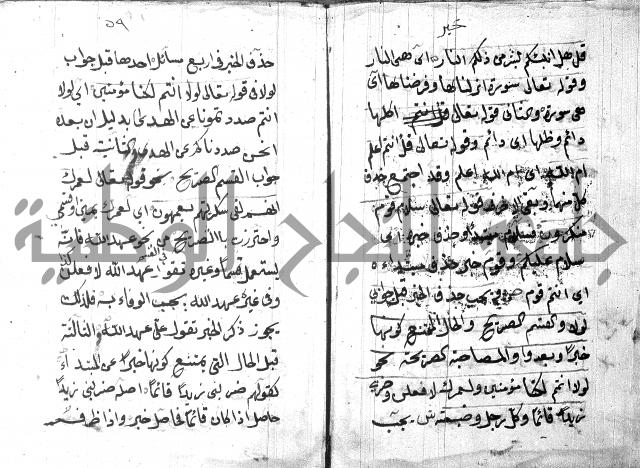 خبر
قل هل انبئكم بشر من ذلكم النار اي هي النار
وقوله تعالى سورة انزلناها وفرضناها اي
هي سورة والثاني قوله تعالى قل انتم اكلها
دائم وظلها اي دائم وقوله تعالى قل انتم اعلم
ام الله اي ام الله اعلم وقد اجتمع حذف
كل منهما وبقي الاخر في قوله تعالى سلام قوم
منكرون فسلام حذف خبره اي
سلام عليكم وقوم خبر حذف مبتداءه
اي انتم قوم ويجب حذف الخبر قبل جوابي
لولا والقسم الصريح والحال الممتنع كونها
خبرا وبعد واو المصاحبة الصريحة نحو
لولا انتم لكنا مؤمنين ولعمرك لافعلن وضربي
زيدا قائما وكل رجل وضيعته ش يجب
٥٩
حذف الخبر في اربع مسائل احدها قبل جواب
لولا في قوله تعالى لولا انتم لكنا مؤمنين اي لولا
انتم صددتمونا عن الهدى بدليل ان بعده
انحن صددناكم عن الهدى والثانية قبل
جواب القسم الصريح نحو قوله تعالى لعمرك
انهم لفي سكرتهم يعمهون اي لعمرك يميني او قسمي
واحترزت بالصريح عن نحو عهد الله فانه
يستعمل قسما وغيره تقول عهد الله لافعلن
وفي غيره عهد الله يجب الوفاء به فلذلك
يجوز ذكر الخبر تقول علي عهد الله والثالثة
قبل الحال التي يمتنع كونها خبرا عن المبتداء
كقولهم ضربي زيدا قائما اصله ضربي زيدا
حاصل اذا كان قائما فحاصل خبر واذا ظرف
جامعة النجاح الوطنية